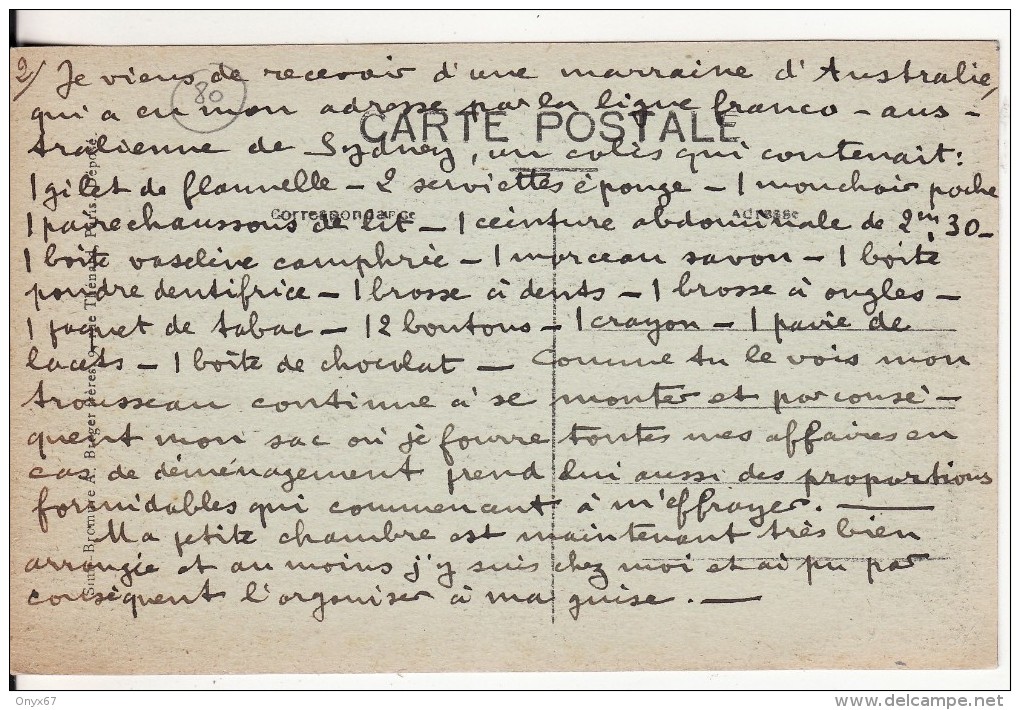 2/ Je viens de recevoir d'une marraine d'Australie,
80
qui a eu mon adresse par la ligne franco-aus-
CARTE POSTALE
tralienne de Sydney, un colis qui contenait :
1 gilet de flannelle - 2 serviettes éponge - 1 mouchoir poche
Correspondance
Adresse
1 paire chaussons de lit - 1 ceinture abdominale de 2m,30 -
1 boite vaseline camphrée - 1 morceau savon - 1 boîte
poudre dentifrice - 1 brosse à dents - 1 brosse à ongles -
1 paquet de tabac - 12 boutons - 1 crayon - 1 paire de
lacets - 1 boîte de chocolat - Comme tu le vois mon
trousseau continue à se monter et par consé-
quent mon sac où je fourre toutes mes affaires en
cas de déménagement prend lui aussi des proportions
formidables qui commencent à m'effrayer. -
Ma petite chambre est maintenant très bien
arrangée et au moins j'y suis chez moi et ai pu par
conséquent l'organiser à ma guise. -
Bromure A. Breger frères, 9, rue Thénard, Paris. Déposé.
Onyx67
http://www.delcampe.net